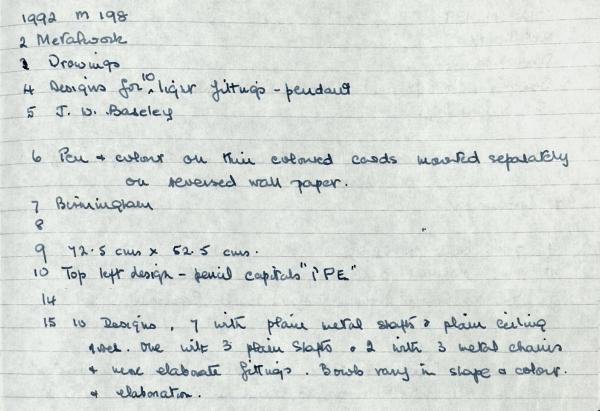 1992 M 198
2 Metalwork
3 Drawings
4 Designs for 10 light fittings - pendant
5 J. W. Baseley
6 Pen & colour on thin coloured cards mounted separately
on reversed wall paper.
7 Birmingham
8
9 72.5 cms x 52.5 cms.
10 Top left design - pencil capitals "i PE"
14
15 10 Designs. 7 with plain metal shafts & plain ceiling
one with 3 plain shafts & 2 with 3 metal chains
& more elaborate fittings. Bowls vary in shape & colour.
& elaboration.